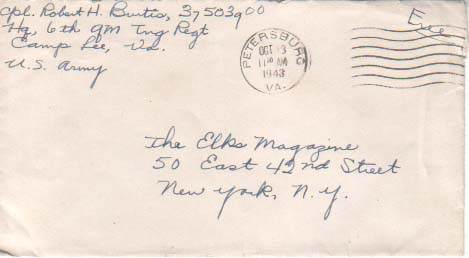 Cpl. Robert H. Burtis, 37503900
Hq. 6th QM Tng Regt
Camp Lee, Va.
U.S. Army
Free
PETERSBURG
OCT 13
11 30 AM
1943
VA.
The Elks Magazine
50 East 42nd Street
New York, N.Y.